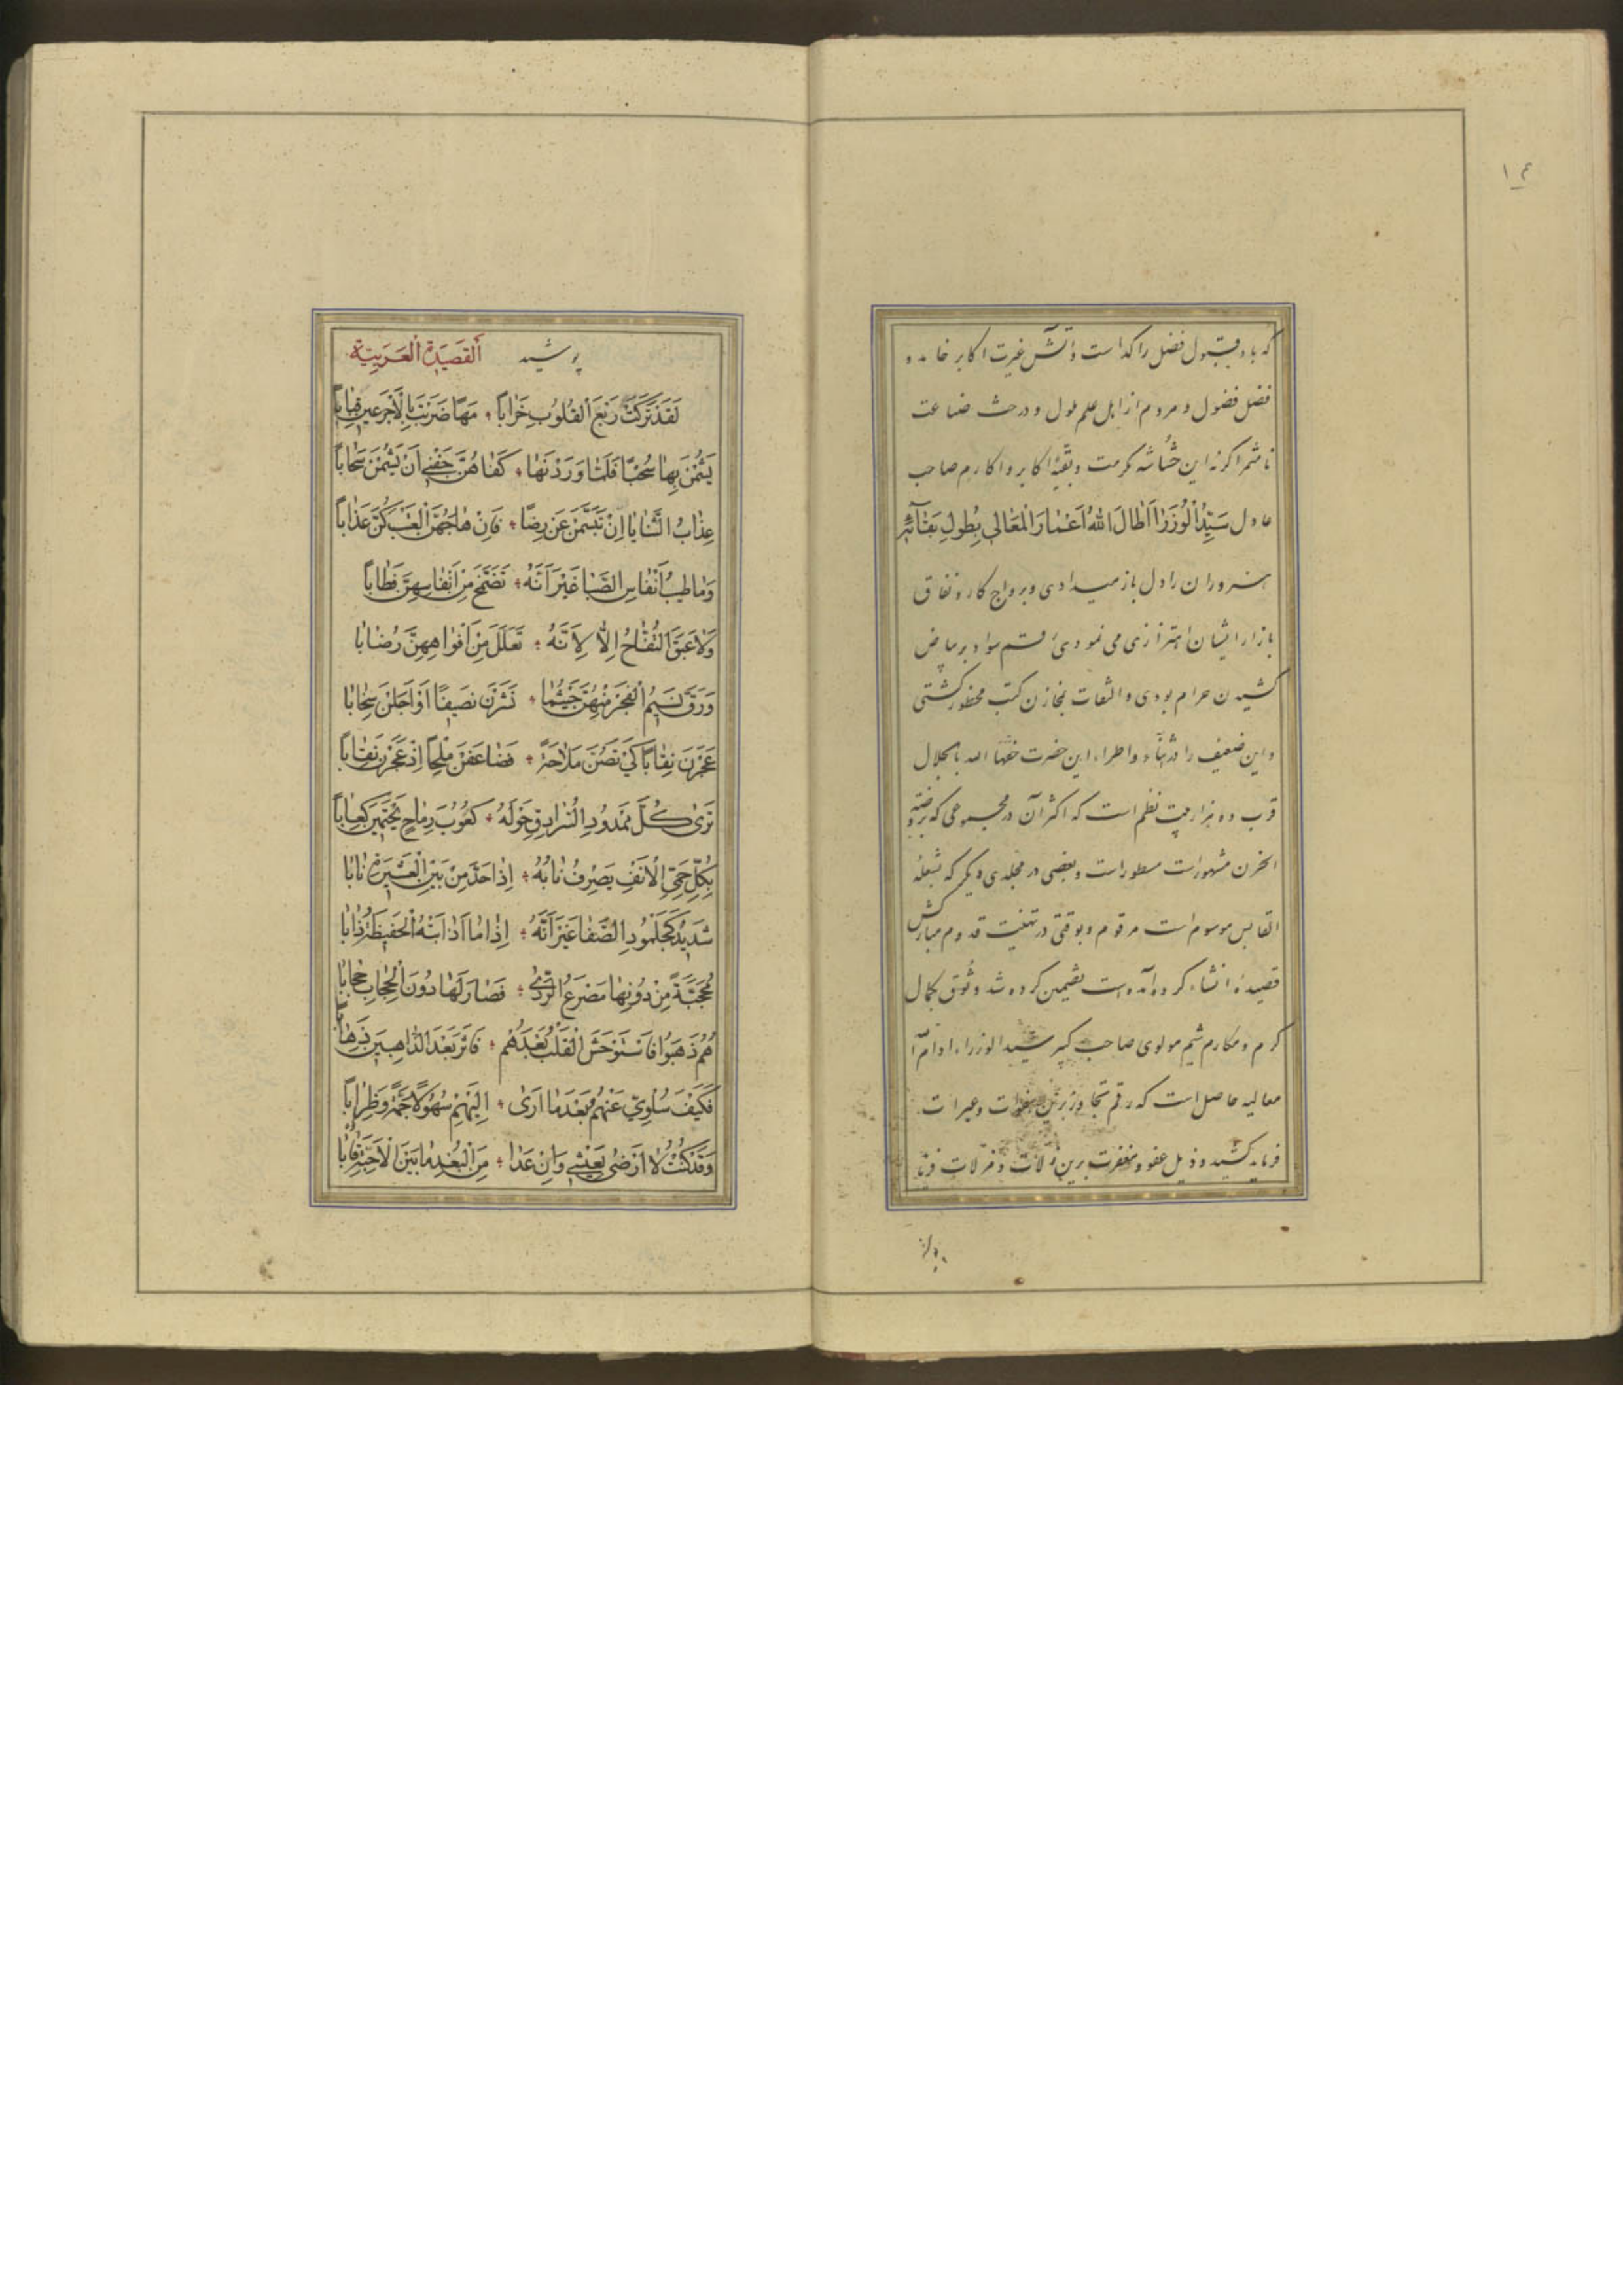 ۱۴
که باد قبول فضل راکد است و آتش غیرت اکابر خامد و
فضل فضول و مردم از اهل علم ملول و درخت ضاعت
نامثمر اگر نه این حشاشه مکرمت و بقیهٔ اکابر و اکارم صاحب
عادل سَیِّدُ الْوُزَرَا اَطَالَ اللهُ اَعْمَارَ الْمَعَالِي بِطُولِ بَقَآئِهِ
هنروران را دل باز میدادی و برواج کار و نفاق
بازار ایشان اهتزازی می نمودی رقم سواد بر بیاض
کشیدن حرام بودی و التفات بمخازن کتب محظور گشتی
و این ضعیف را در ثناء و اطراء این حضرت خصها الله بالجلال
قرب دو هزار بیت نظم است که اکثر آن در مجموعی که بروضة
الحزن مشهورست مسطورست و بعضی در مجلدی دیگر که بشعلة
القابس موسوم است مرقوم و بوقتی در تهنیت قدوم مبارکش
قصیدهٔ انشاء کرده آمده است تضمین کرده شد وثوق بکمال
کرم و مکارم شیم مولوی صاحب کبیر سید الوزراء ادام الله
معالیه حاصل است که رقم تجاوز برین هفوات و عثرات
فرماید کشید و ذیل عفو و مغفرت برین زلات و مزلات
پوشید اَلْقَصِیدَةُ الْعَرَبِیَّة
لَقَدْ تَرَكَتْ رَبْعَ الْقُلُوبِ خَرَاباً ؞ مَهًا ضَرَبَتْ بِالْاَجْرَعَيْنِ قِبَاباً
يَشُمْنَ بِهَا سُحْبًا فَلَمَّا وَرَدْنَهَا ؞ كَفَاهُنَّ جَفْنِي اَنْ يَشُمْنَ سَحَاباً
عِذَابُ الثَّنَايَا اِنْ تَبَسَّمْنَ عَنْ رِضًا ؞ فَاِنْ هَاجَهُنَّ الْعَتْبُ كُنَّ عَذَاباً
وَمَا طِيبُ اَنْفَاسِ الصَّبَا غَيْرَ اَنَّهُ ؞ تَضَمَّخَ مِنْ اَنْفَاسِهِنَّ فَطَاباً
وَلَا عَبَقَ التُّفَّاحُ اِلَّا لِاَنَّهُ ؞ تَعَلَّلَ مِنْ اَفْوَاهِهِنَّ رُضَابَا
وَرَقَّ نَسِيمُ الْفَجْرِ مِنْهُنَّ حَيْثُمَا ؞ نَشَرْنَ نَصِيفًا اَوْ اَجَلْنَ سِخَابَا
عَجَرْنَ نِقَابًا كَيْ تَصُنَّ مَلَاحَةً ؞ فَضَاعَفْنَ مِلْحًا اِذْ عَجَرْنَ نِقَاباً
تَرَى كُلَّ مَمْدُودِ السُّرَادِقِ حَوْلَهُ ؞ كُعُوبَ رِمَاحٍ يَحْتَمِينَ كِعَاباً
بِكُلِّ حَمِيِّ الْاَنْفِ يَصْرِفُ نَابُهُ ؞ اِذَا حَدَّ مِنْ بَيْنِ الْعَشِيرَةِ نَابَا
شَدِيدٌ كَجُلْمُودِ الصَّفَا غَيْرَ اَنَّهُ ؞ اِذَا مَا اَذَابَتْهُ الْحَفِيظَةُ ذَابَا
مُحَجَّبَةً مِنْ دُونِهَا مَصْرَعُ الرَّدٰى ؞ فَصَارَ لَهَا دُونَ الْحِجَابِ حِجَابَا
هُمُ ذَهَبُوا فَاسْتَوْحَشَ الْقَلْبُ بَعْدَهُمْ ؞ فَاَثِرْ بَعْدَ الذَّاهِبِينَ ذَهَابَا
فَكَيْفَ سُلُوِّي عَنْهُمُ بَعْدَمَا اَرٰى ؞ اِلَيْهِمْ سُهُولًا جَمَّةً وَظِرَاباً
وَقَدْ كُنْتُ لَا اَرْضٰى بِعَيْشِي وَاِنْ غَدَا ؞ مِنَ الْبُعْدِ مَا بَيْنَ الْاَحِبَّةِ قَابَا